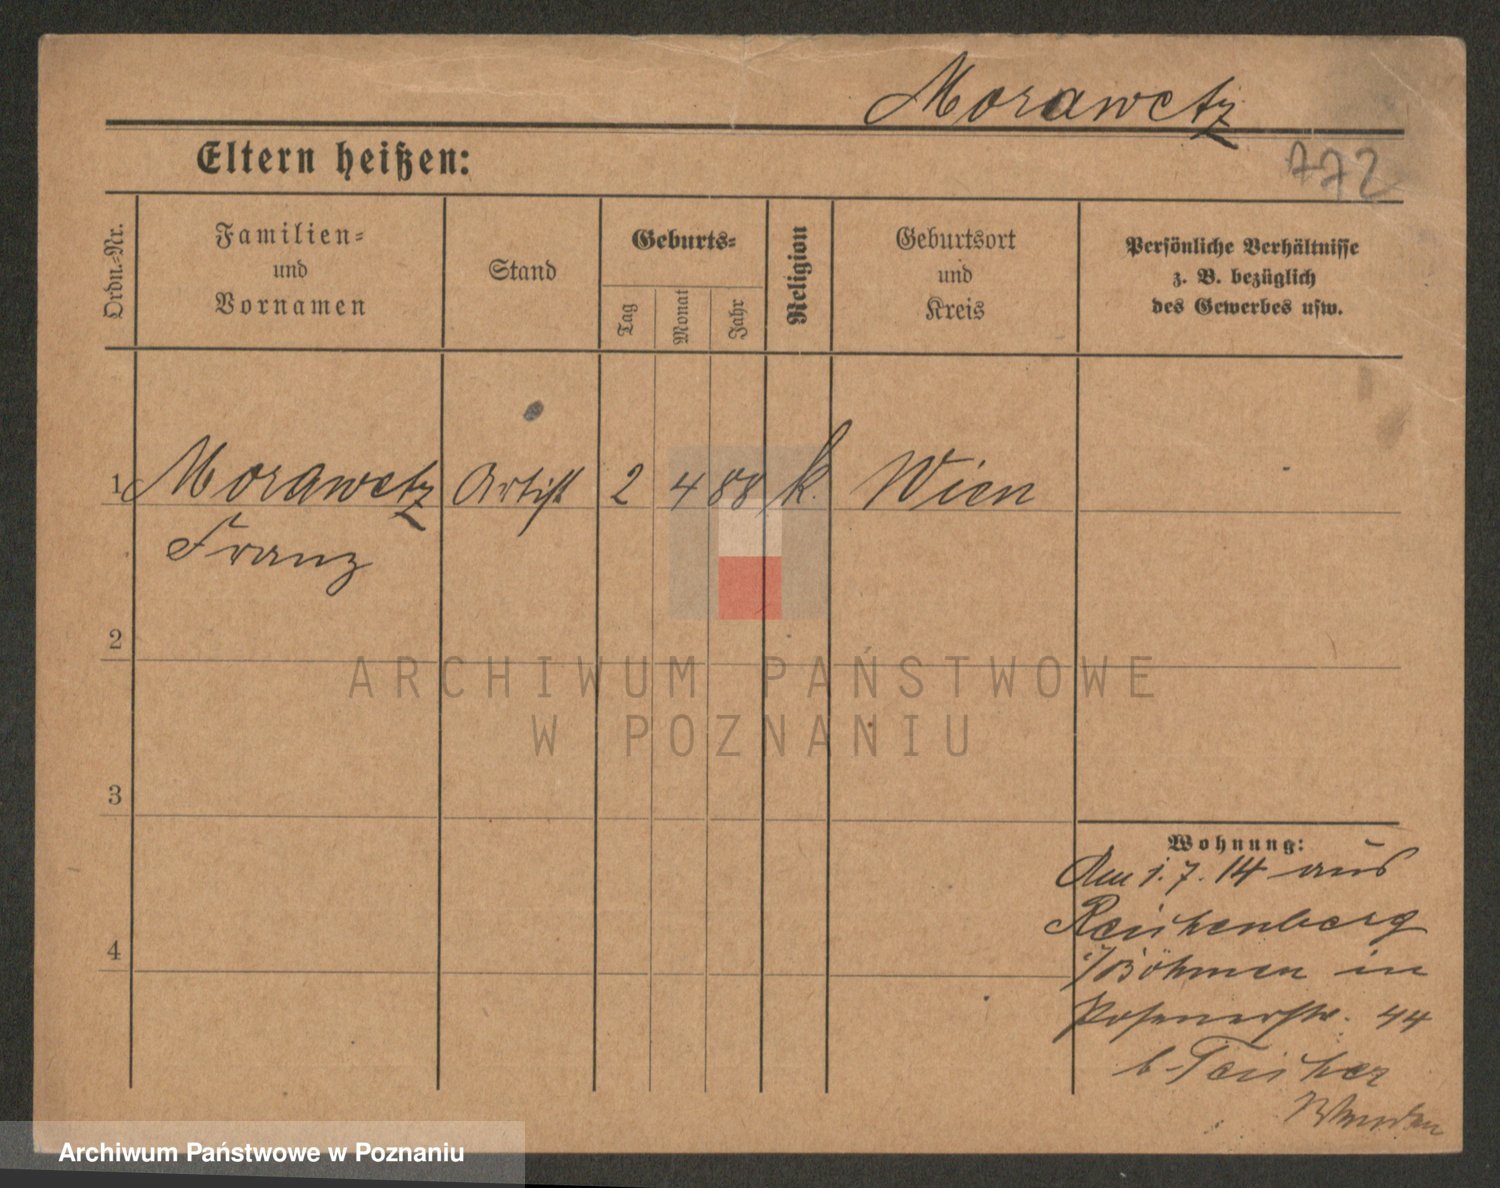 Morawetz
Eltern heißen:
772
Ordn.-Nr.
Familien-
und
Vornamen
Stand
Geburts-
Tag
Monat
Jahr
Religion
Geburtsort
und
Kreis
Persönliche Verhältnisse
z. B. bezüglich
des Gewerbes usw.
1 Morawetz Artist 2 4 88 k. Wien
Franz
2
ARCHIWUM PAŃSTWOWE
W POZNANIU
3
Wohnung:
Am 1.7.14 aus
Reichenberg
i/Böhmen in
4
Posenerstr. 44
b. Teicher
Archiwum Państwowe w Poznaniu